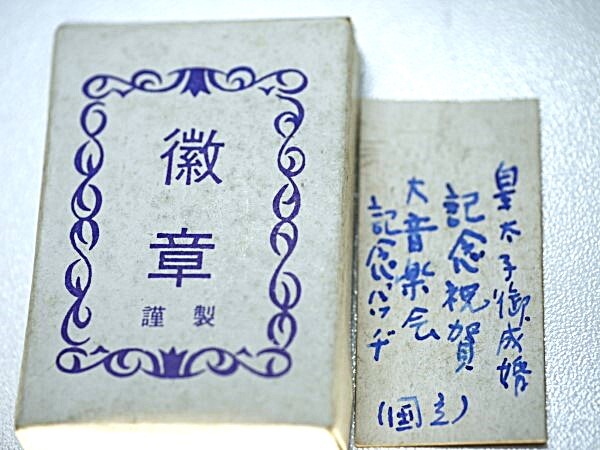 徽章
謹製
皇太子御成婚
記念祝賀
大音楽会
記念バッヂ
(国立)